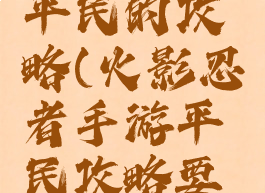 平民的攻
略(火影忍
者手游平
民攻略要